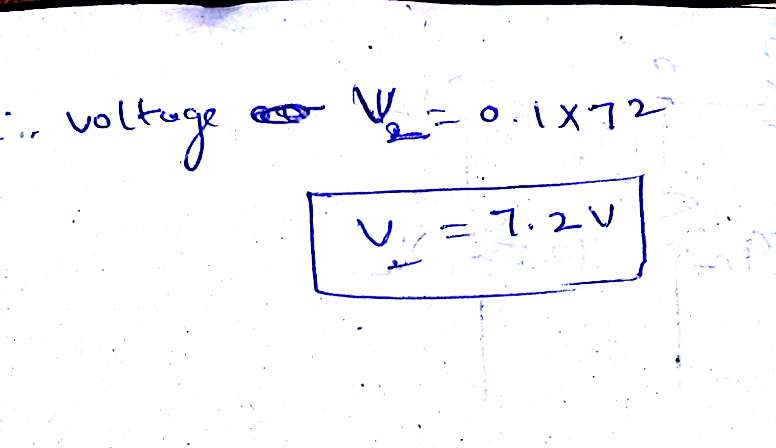 ∴ voltage V₂ = 0.1 x 72
V₂ = 7.2 V